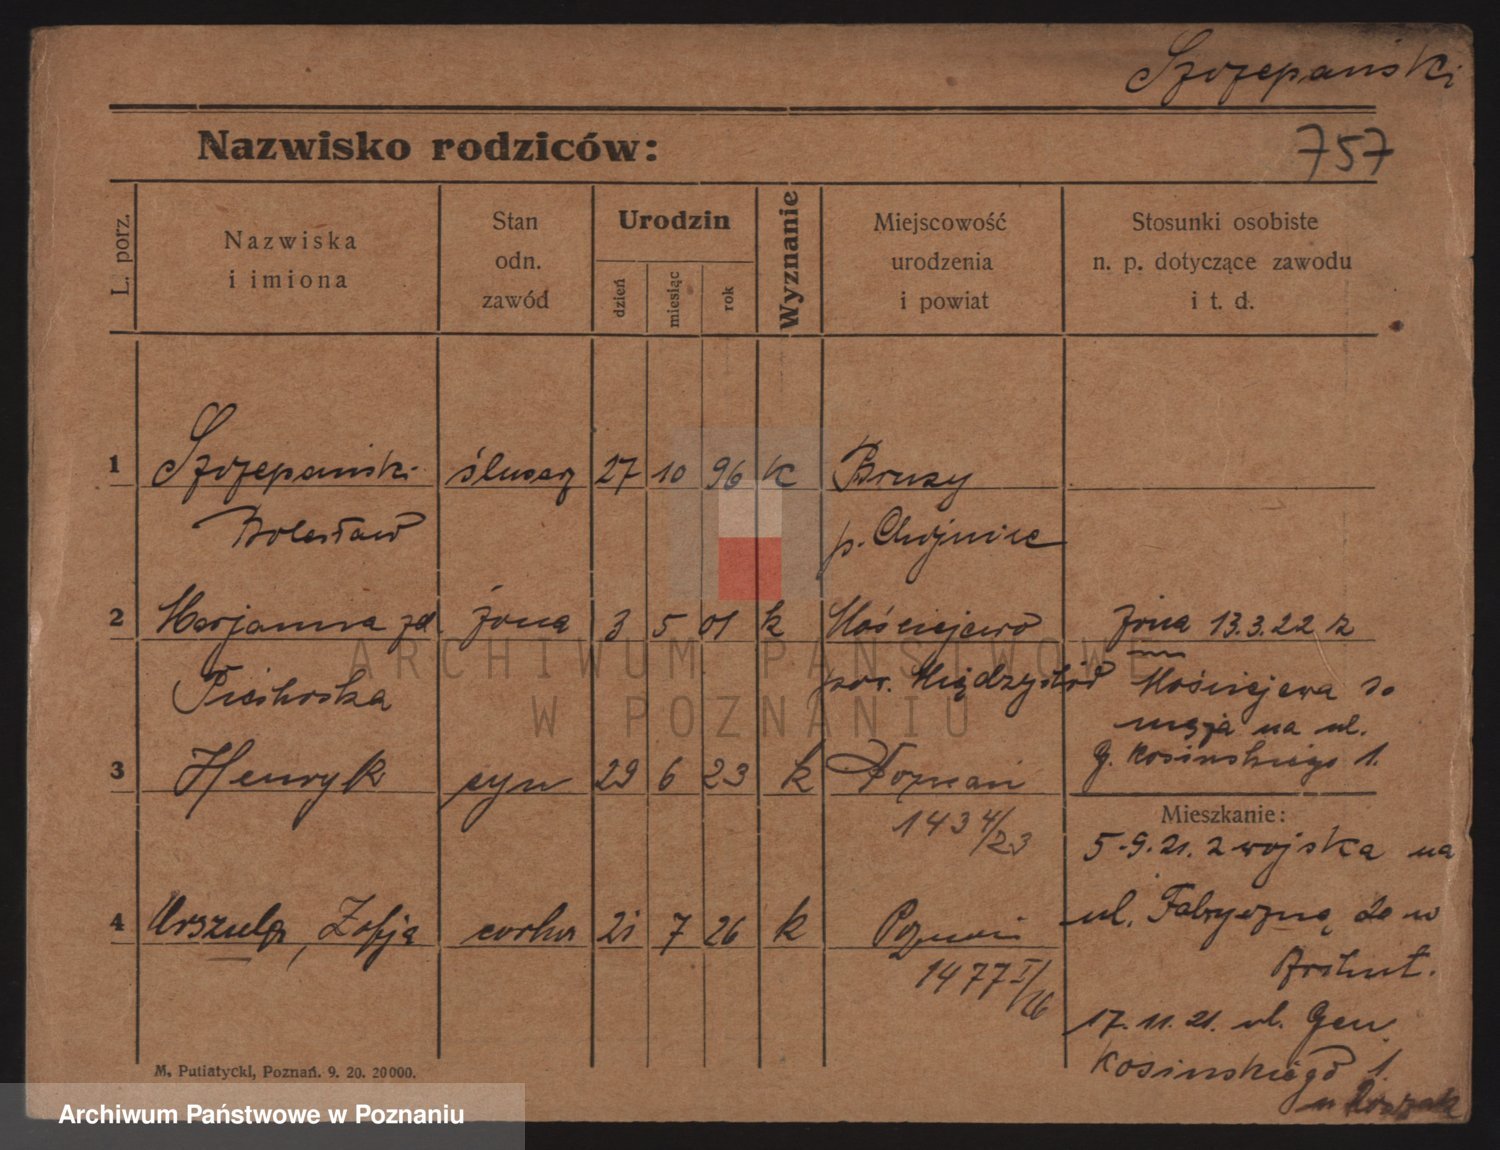 Szczepański
Nazwisko rodziców:
757
L. porz.
Nazwiska
i imiona
Stan
odn.
zawód
Urodzin
dzień
miesiąc
rok
Wyznanie
Miejscowość
urodzenia
i powiat
Stosunki osobiste
n. p. dotyczące zawodu
i t. d.
1 Szczepański ślusarz 27 10 96 k Brusy
Bolesław p. Chojnice
2 Marjanna zd. żona 3 5 01 k Mościejewo żona 13.3.22 z
Piechocka pow. Międzychód Mościejewa do
męża na ul.
G. Kosińskiego 1.
3 Henryk syn 29 6 23 k Poznań
1434/23
Mieszkanie:
5.9.21. z wojska na
ul. Fabryczną 20 w
4 Urszula, Zofja córka 21 7 26 k Poznań
1477 I/26
17.11.21. ul. Gen.
Kosińskiego 1.
M. Putiatycki, Poznań. 9. 20. 20000.
ARCHIWUM PAŃSTWOWE
W POZNANIU
Archiwum Państwowe w Poznaniu